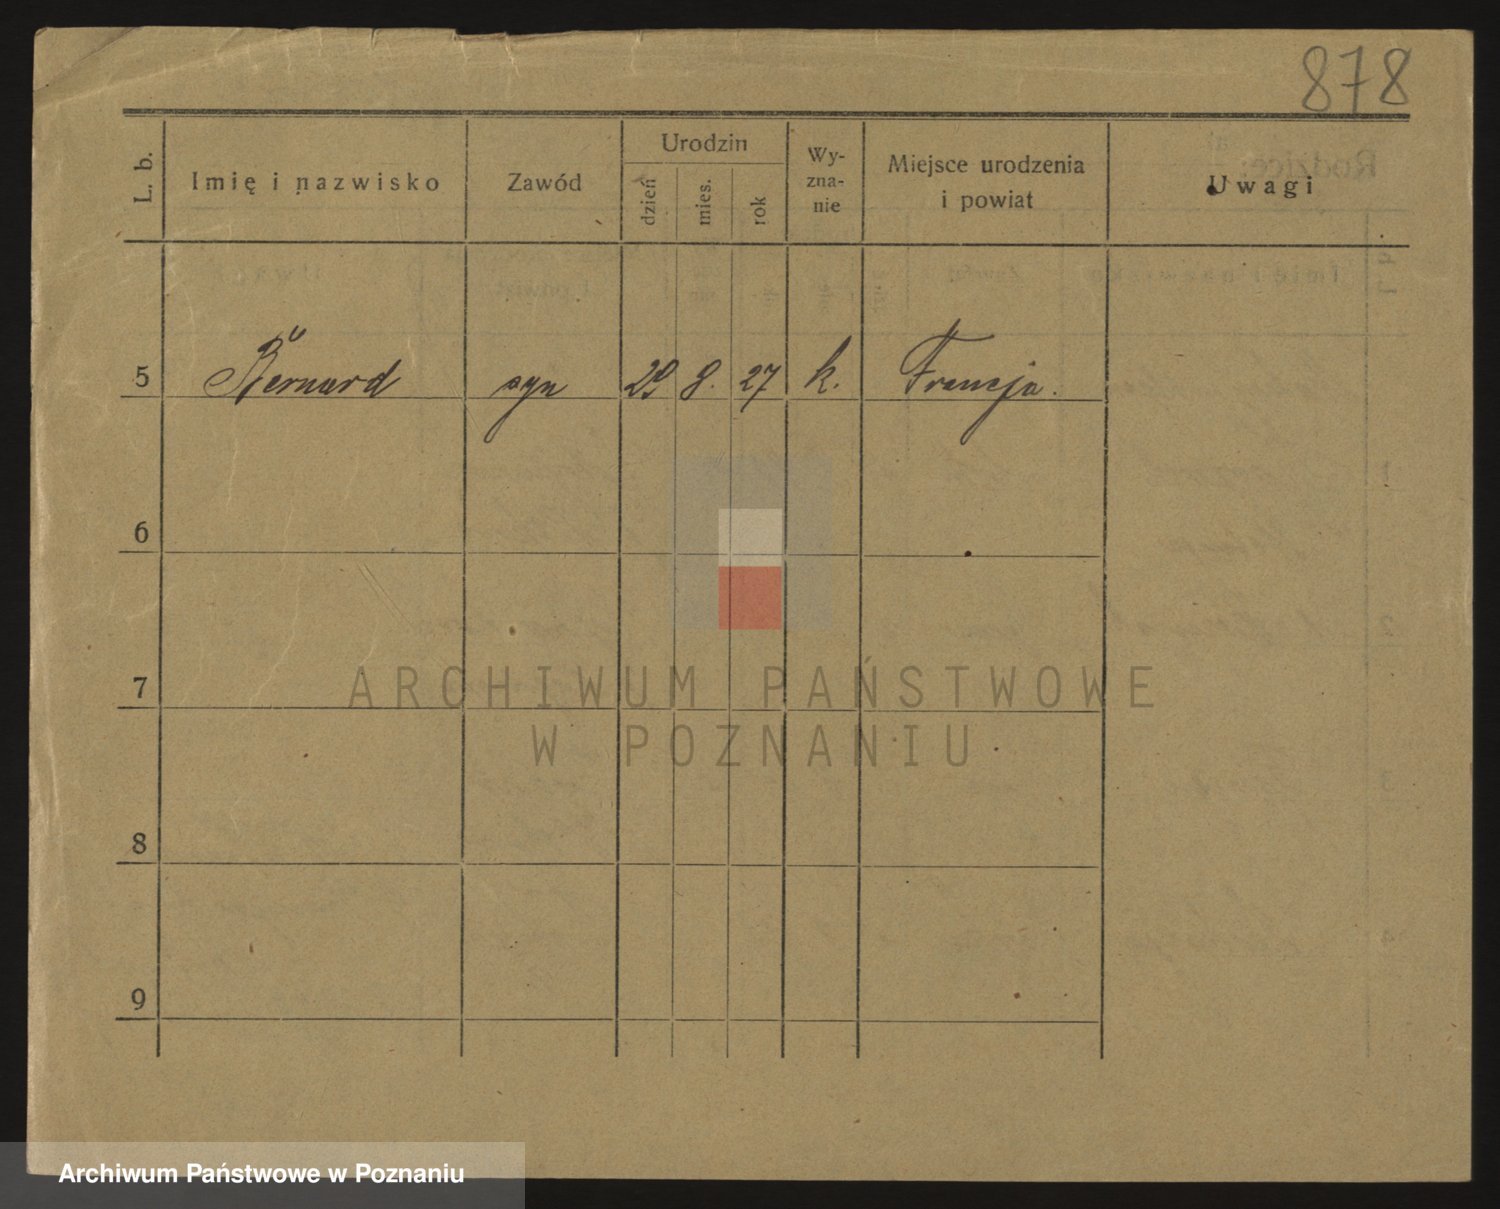 878
L. b.
Imię i nazwisko
Zawód
Urodzin
dzień
mies.
rok
Wy-
zna-
nie
Miejsce urodzenia
i powiat
Uwagi
5 Bernard syn 29 8. 27 k. Francja.
6
7
8
9
ARCHIWUM PAŃSTWOWE
W POZNANIU
Archiwum Państwowe w Poznaniu